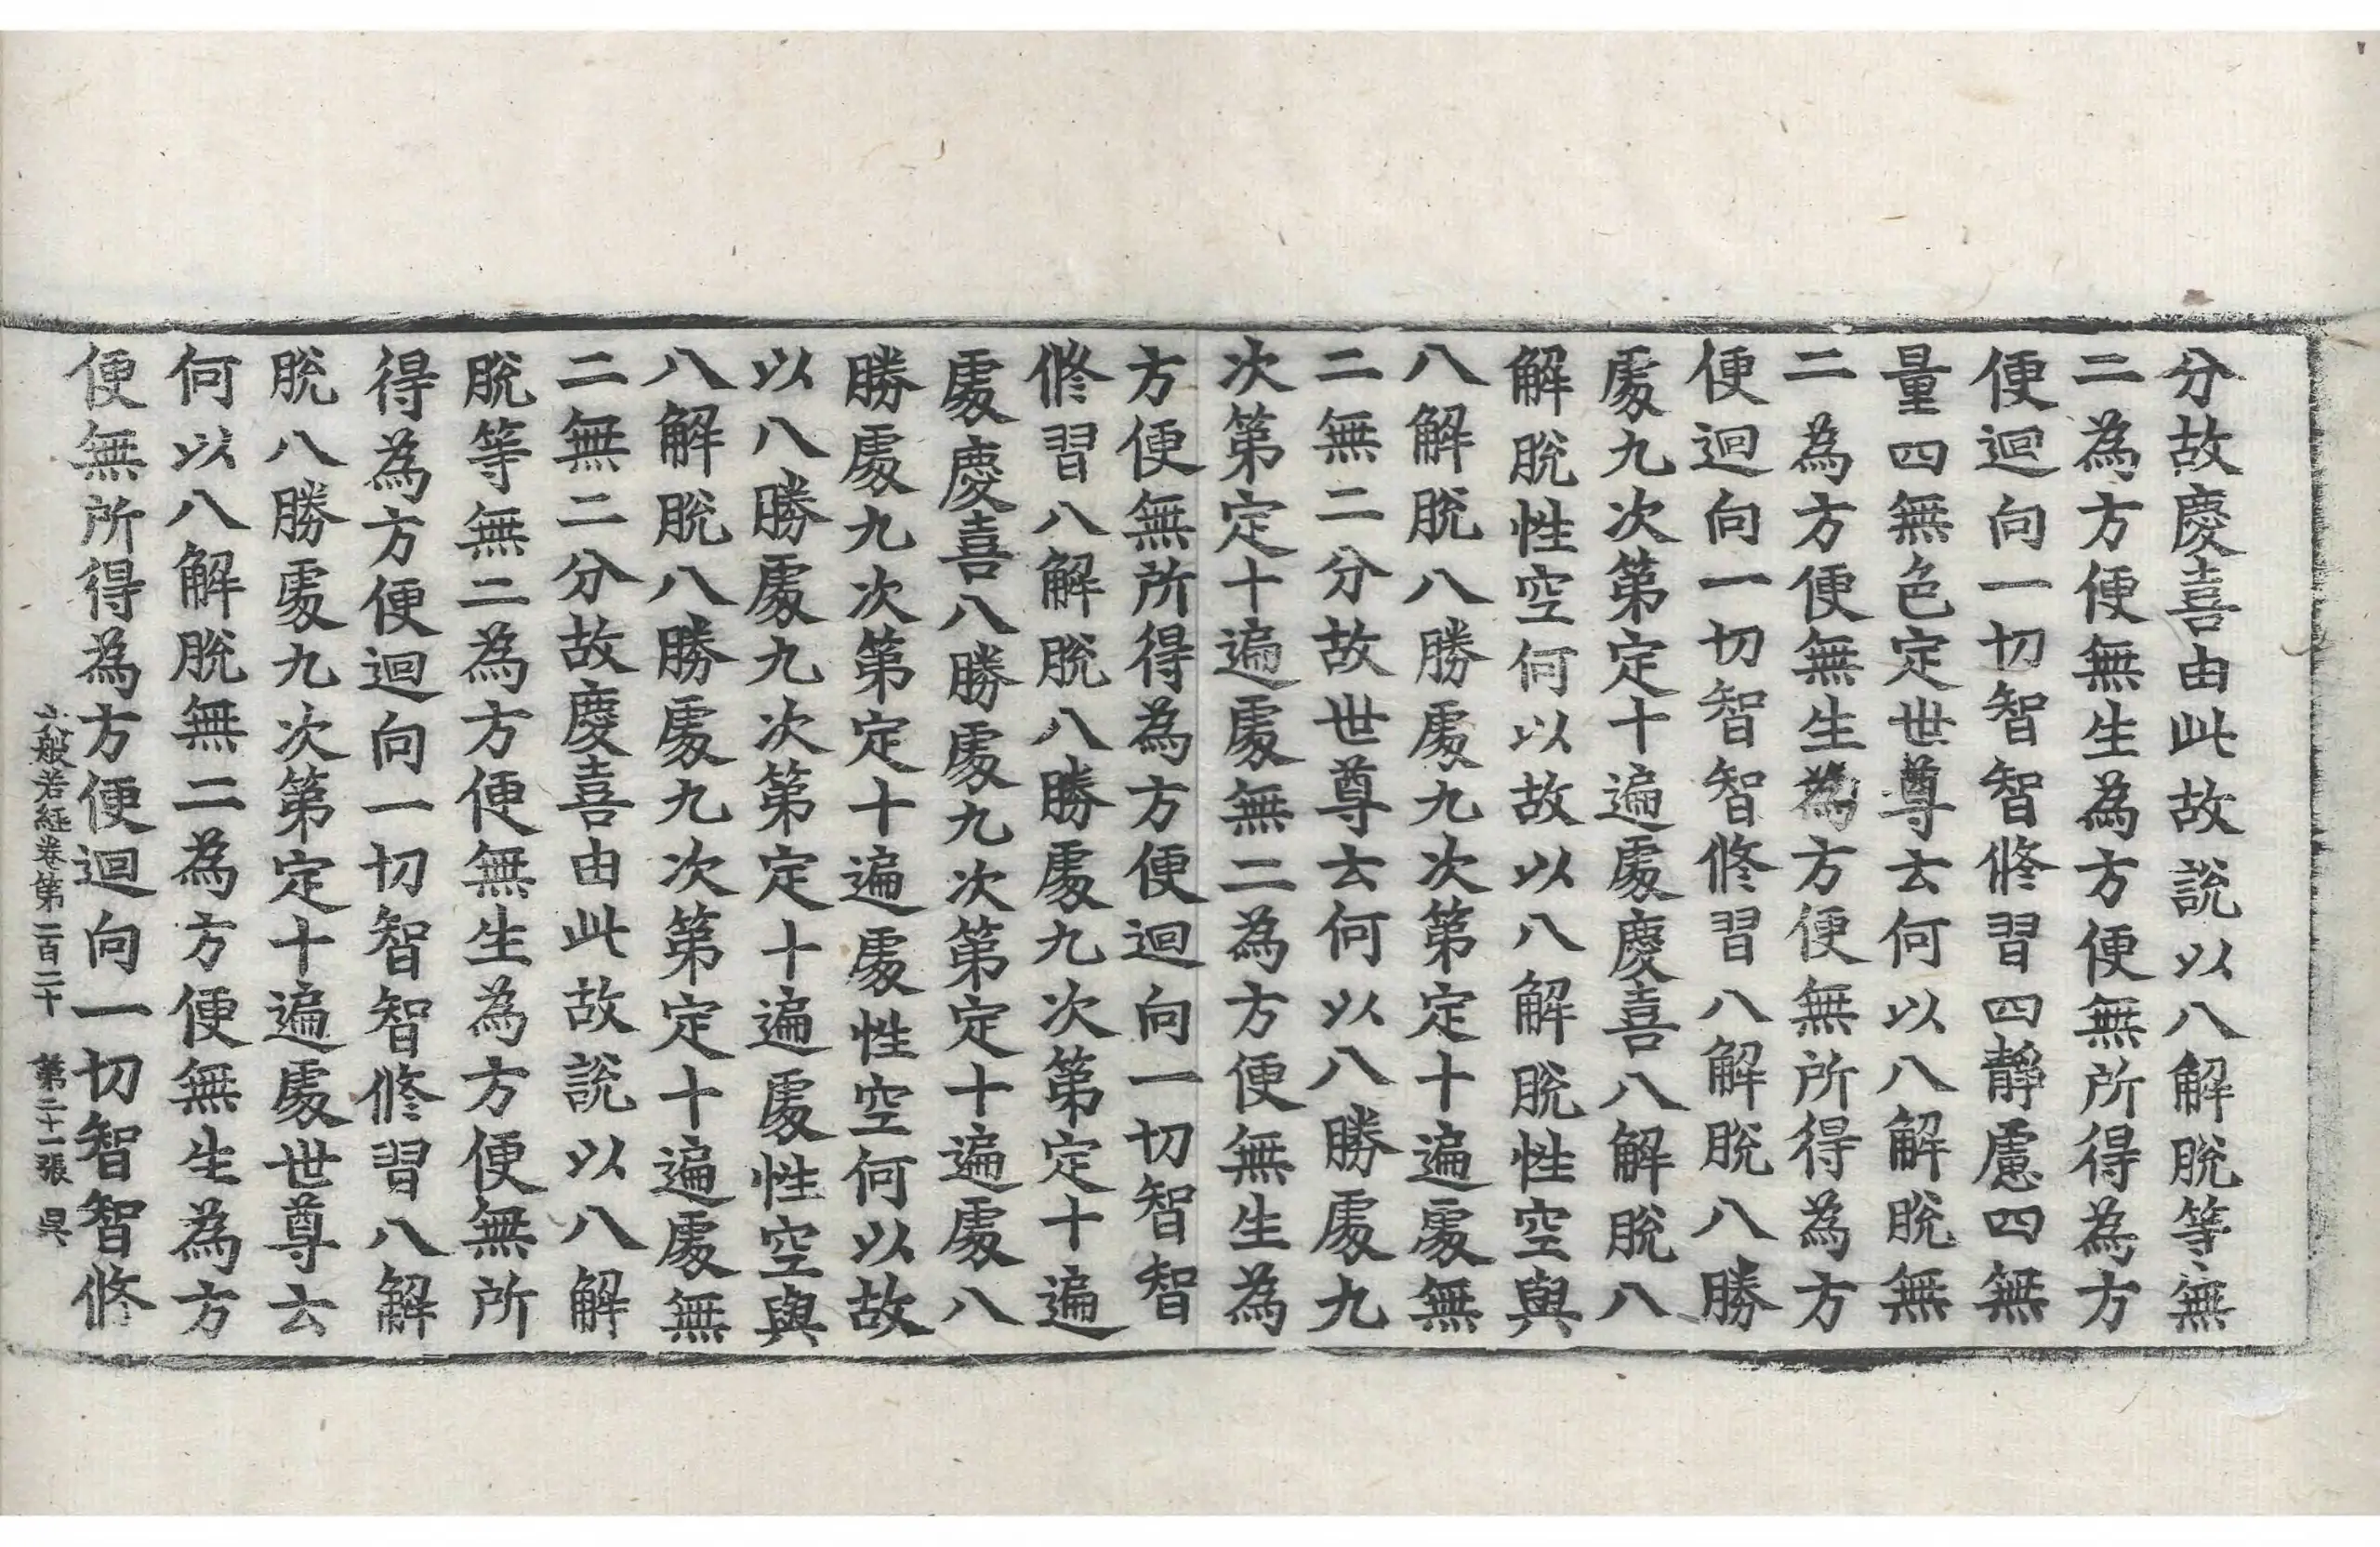 分故慶喜由此故說以八解脫等無
二為方便無生為方便無所得為方
便迴向一切智智修習四靜慮四無
量四無色定世尊云何以八解脫無
二為方便無生為方便無所得為方
便迴向一切智智修習八解脫八勝
處九次第定十遍處慶喜八解脫八
解脫性空何以故以八解脫性空與
八解脫八勝處九次第定十遍處無
二無二分故世尊云何以八勝處九
次第定十遍處無二為方便無生為
方便無所得為方便迴向一切智智
修習八解脫八勝處九次第定十遍
處慶喜八勝處九次第定十遍處八
勝處九次第定十遍處性空何以故
以八勝處九次第定十遍處性空與
八解脫八勝處九次第定十遍處無
二無二分故慶喜由此故說以八解
脫等無二為方便無生為方便無所
得為方便迴向一切智智修習八解
脫八勝處九次第定十遍處世尊云
何以八解脫無二為方便無生為方
便無所得為方便迴向一切智智修
大般若經卷第一百二十 第二十一張 昃